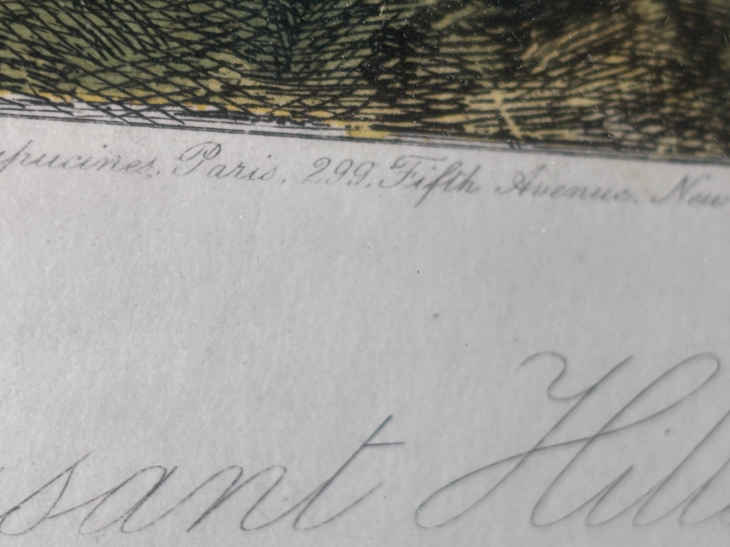 pucines, Paris, 299, Fifth Avenue, New
sant Hill